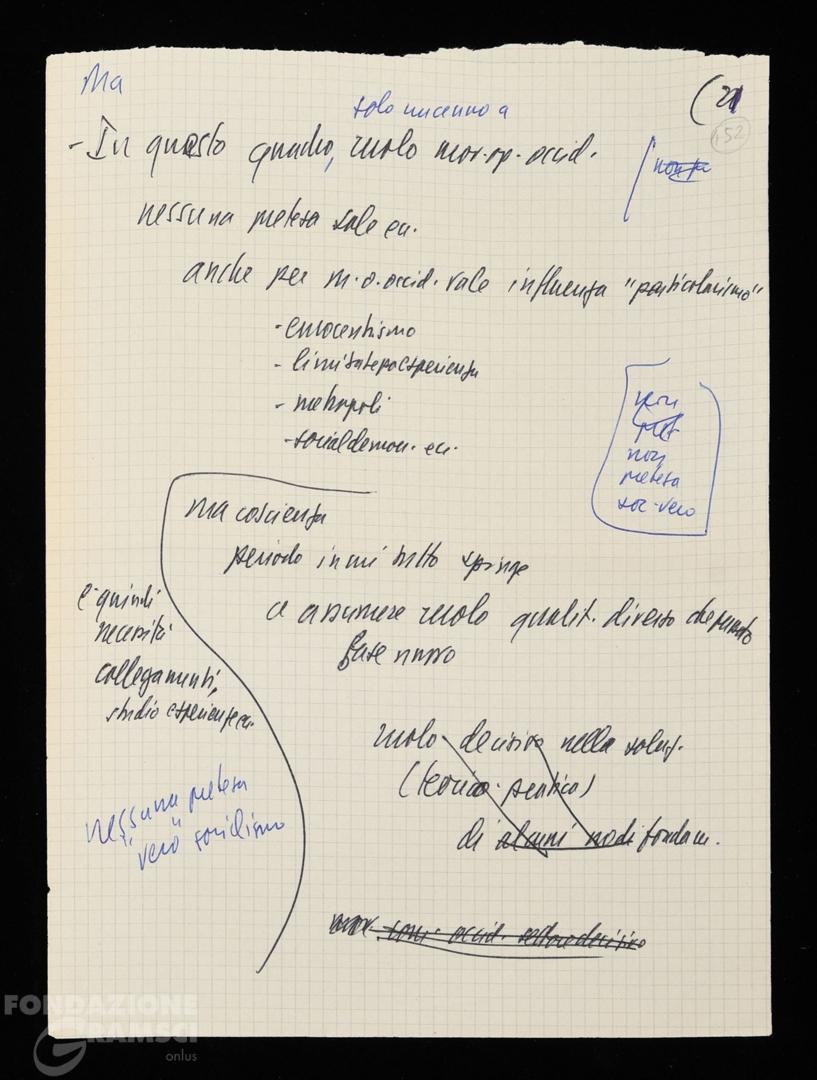 Ma
(21
152
solo un cenno a
- In questo quadro, ruolo mov. op. occid.
nessuna pretesa sole ecc.
anche per m. o. occid. vale influenza "particolarismo"
- eurocentrismo
- limitatezza esperienza
- metropoli
- socialdemocr. ecc.
non
pret
non
pretesa
soc. vero
ma coscienza
periodo in cui tutto spinge
a assumere ruolo qualit. diverso che passato
fase nuova
e quindi
necessità
collegamenti,
studio esperienze ecc.
ruolo decisivo nella soluz.
(teorico-pratica)
di alcuni nodi fondam.
nessuna pretesa
"vero" socialismo
occid. settore decisivo
FONDAZIONE
GRAMSCI
onlus